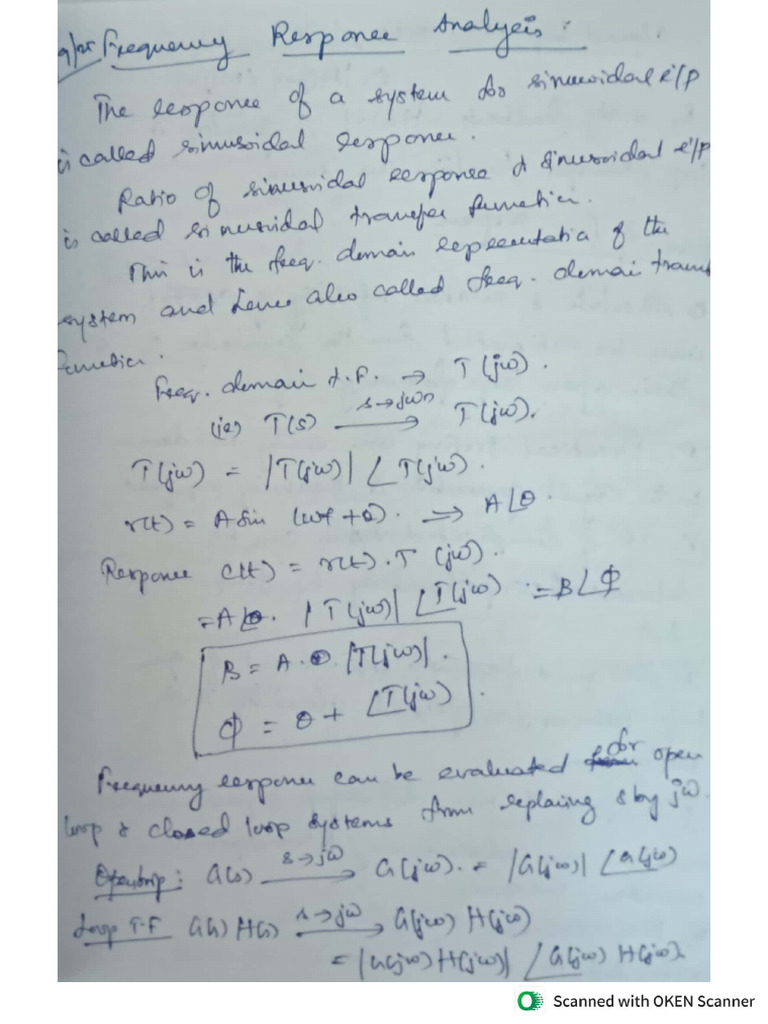 Frequency Response Analysis :
The response of a system for sinusoidal i/p
is called sinusoidal response.
Ratio of sinusoidal response & sinusoidal i/p
is called sinusoidal transfer function.
This is the freq. domain representation of the
system and hence also called freq. domain trans
function.
Freq. domain t.f. → T(jω).
(ie) T(s) s→jω → T(jω).
T(jω) = |T(jω)| ∠T(jω).
r(t) = A sin (ωt + θ). ⇒ A∠θ.
Response c(t) = r(t). T (jω).
= A∠θ. |T(jω)| ∠T(jω) = B∠φ
B = A. |T(jω)|.
φ = θ + ∠T(jω).
Frequency response can be evaluated for open
loop & closed loop systems from replacing s by jω.
Open loop : G(s) s→jω → G(jω). = |G(jω)| ∠G(jω)
Loop T.F G(s) H(s) s→jω → G(jω) H(jω)
= |G(jω) H(jω)| ∠G(jω) H(jω).
Scanned with OKEN Scanner